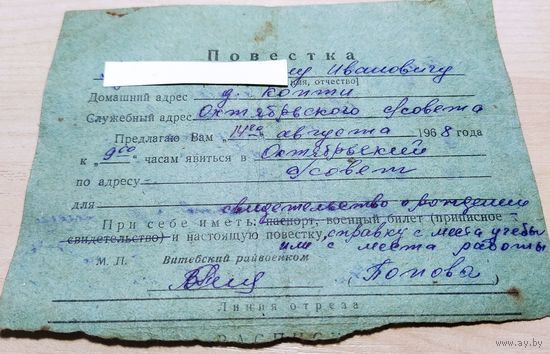 Повестка
Ивановичу
имя, отчество)
Домашний адрес д. Копти
Служебный адрес Октябрьского с/совета
Предлагаю Вам „14го" августа 1968 года
к „9 00" часам явиться в Октябрьский
по адресу с/совет
для
свидетельство о рождении
При себе иметь: паспорт, военный билет (приписное
свидетельство) и настоящую повестку, справку с места учебы
или с места работы
М. П. Витебский райвоенком
(Попов)
Линия отреза
РАСПИСК
www.ay.by